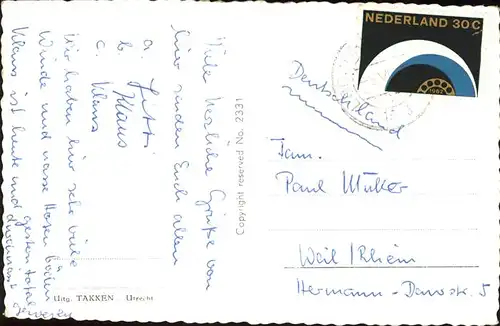 NEDERLAND 30 C
1962
Deutschland
Viele herzliche Grüße von
hier senden Euch allen
a. Jutti
b. Klaus
c. Klaus
Wir haben hier sehr viele
Winde und nasse Hosen
Klaus ist heute und gestern total
durchnässt gewesen
Copyright reserved No. 2331
Uitg. TAKKEN Utrecht
Fam.
Paul Müller
Weil/Rhein
Hermann-Daur-str. 5